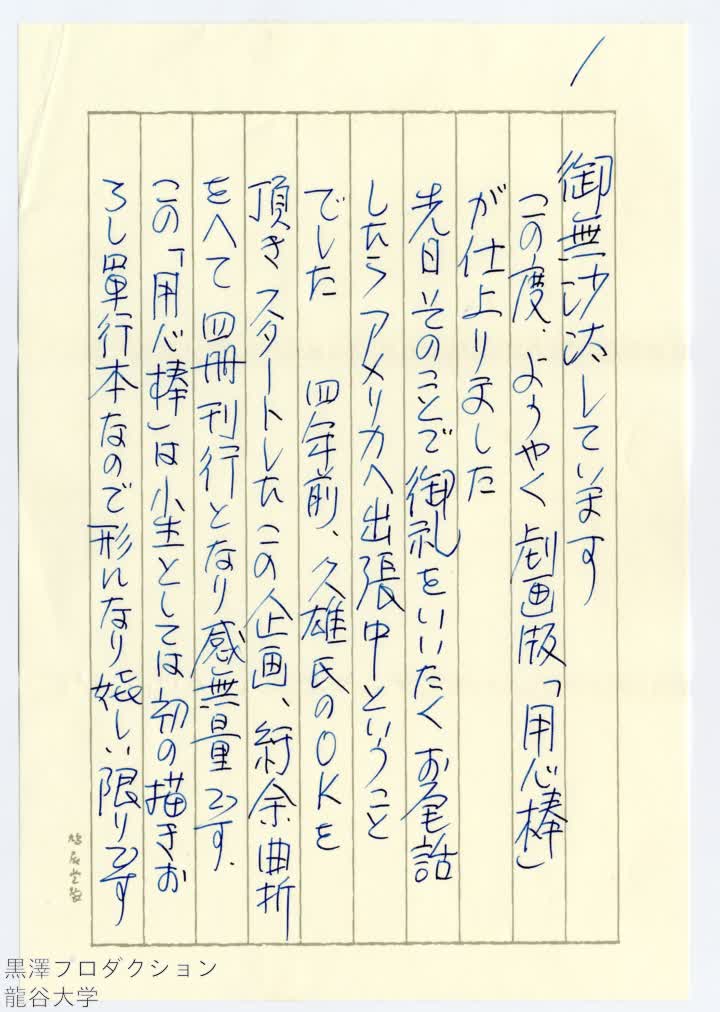 1
御無沙汰しています
この度、ようやく劇画版「用心棒」
が仕上りました
先日そのことで御礼をいいたくお電話
したらアメリカへ出張中ということ
でした 四年前、久雄氏のOKを
頂きスタートしたこの企画、紆余曲折
をへて四冊刊行となり感無量です.
この「用心棒」は小生としては初の描きお
ろし單行本なので形になり嬉しい限りです
鳩居堂製
黒澤プロダクション
龍谷大学